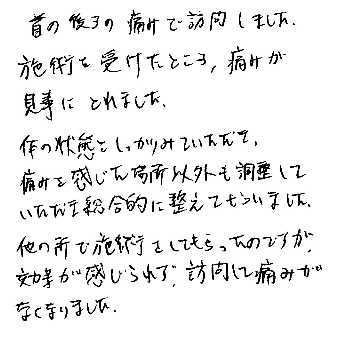 首の後ろの痛みで訪問しました.
施術を受けたところ, 痛みが
見事にとれました.
体の状態をしっかりみていただき,
痛みを感じた場所以外も調整して
いただき総合的に整えてもらいました.
他の所で施術をしてもらったのですが,
効果が感じられず, 訪問して痛みが
なくなりました.